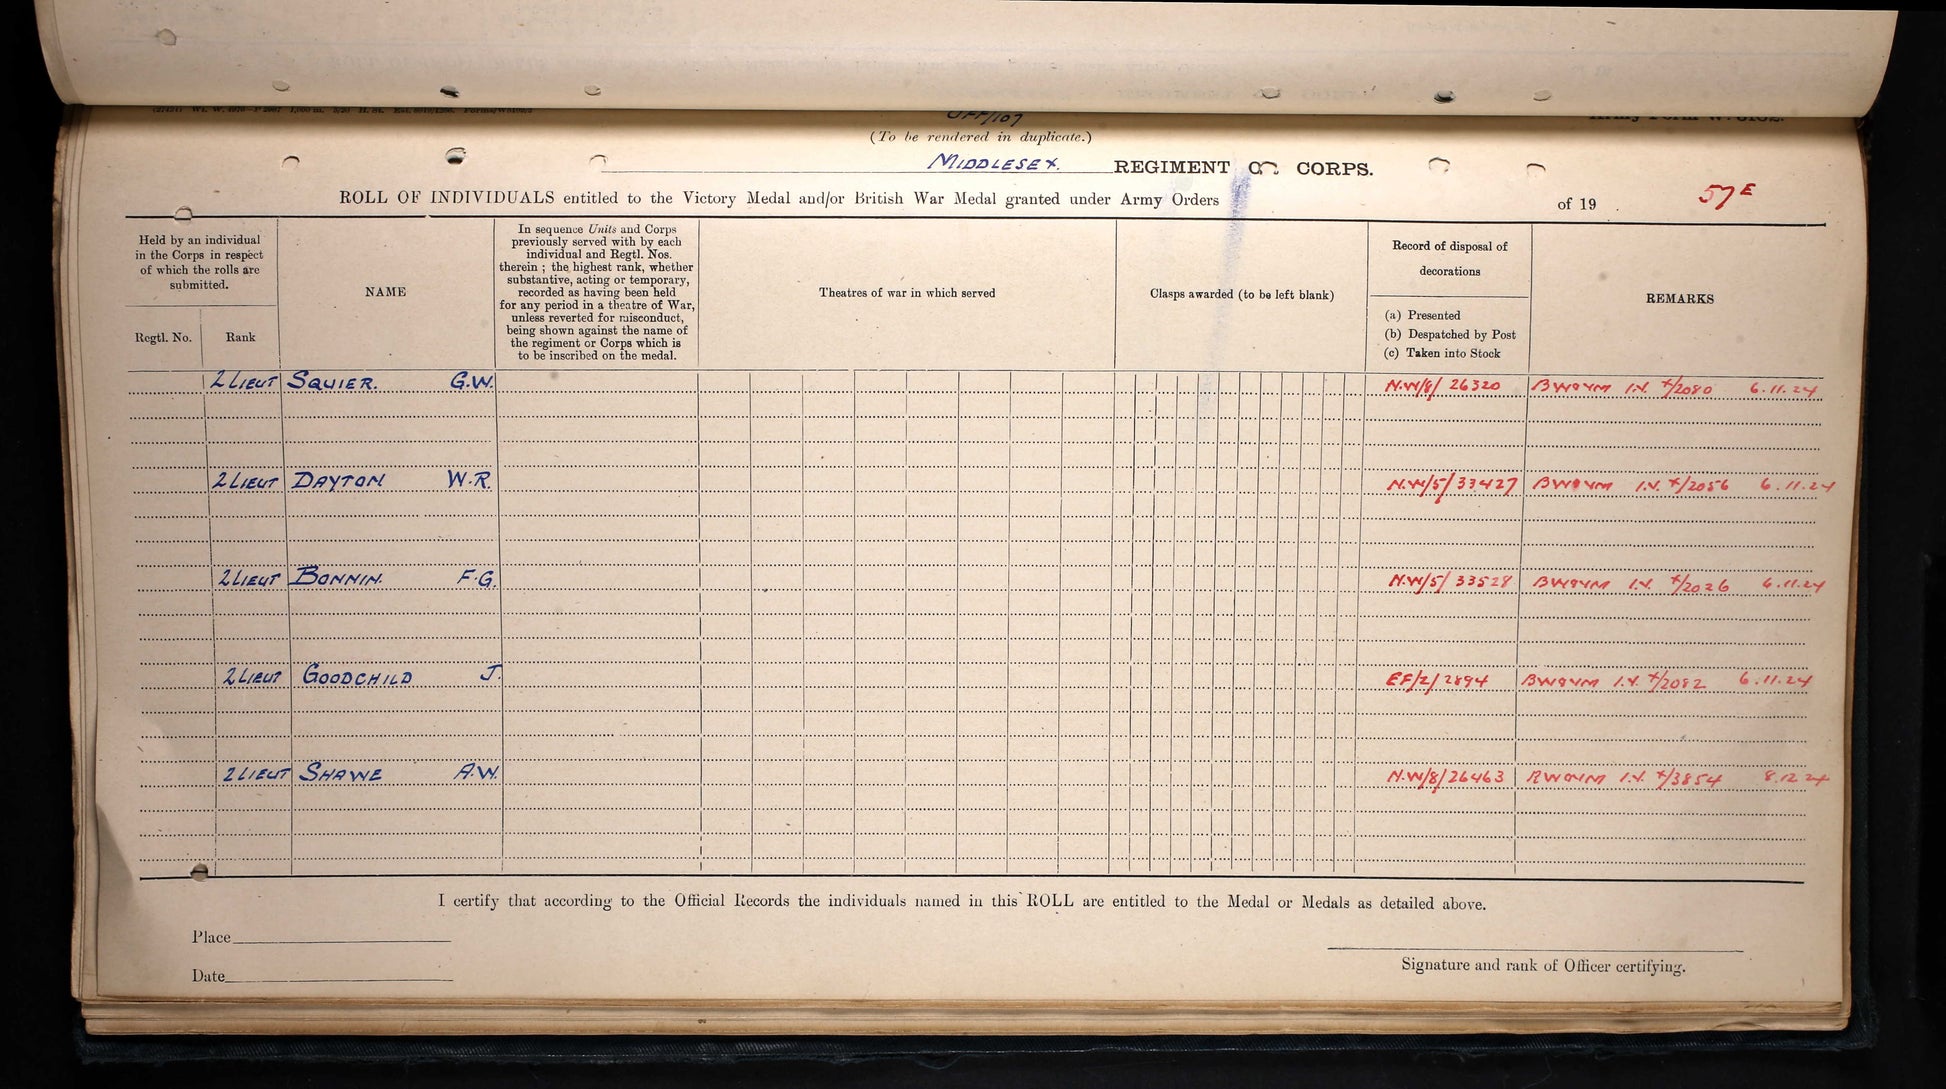 OFF/107
(To be rendered in duplicate.)
MIDDLESEX. REGIMENT OR CORPS.
ROLL OF INDIVIDUALS entitled to the Victory Medal and/or British War Medal granted under Army Orders of 19 . 57E
Held by an individual in the Corps in respect of which the rolls are submitted.
Regtl. No.
Rank
NAME
In sequence Units and Corps
previously served with by each
individual and Regtl. Nos.
therein ; the highest rank, whether
substantive, acting or temporary,
recorded as having been held
for any period in a theatre of War,
unless reverted for misconduct,
being shown against the name of
the regiment or Corps which is
to be inscribed on the medal.
Theatres of war in which served
Clasps awarded (to be left blank)
Record of disposal of
decorations
(a) Presented
(b) Despatched by Post
(c) Taken into Stock
REMARKS
2 LIEUT SQUIER. G.W. N.W/8/ 26320 BW&VM I.V. X/2080 6.11.24
2 LIEUT DAYTON W.R. N.W/5/ 33427 BW&VM I.V. X/2056 6.11.24
2 LIEUT BONNIN. F.G. N.W/5/ 33528 BW&VM I.V. X/2026 6.11.24
2 LIEUT GOODCHILD J. EF/2/ 2894 BW&VM I.V. X/2082 6.11.24
2 LIEUT SHAWE A.W. N.W/8/26463 BW&VM I.V. X/3854 8.12.24
I certify that according to the Official Records the individuals named in this ROLL are entitled to the Medal or Medals as detailed above.
Place
Date
Signature and rank of Officer certifying.